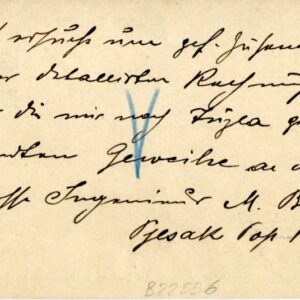 ersuche um gef. Zusen
er detallirten Rechnu
die mir nach Tuzla g
ndten Geweihe an d
sse Ingenieur M. B
Pjesak Pop
B22556